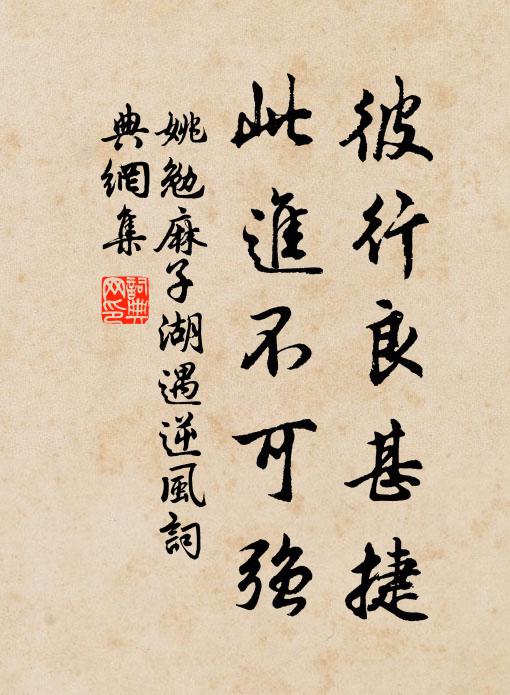 彼行良甚捷
此進不可強
姚勉麻子湖遇逆風詞
典網集
詞典
网印